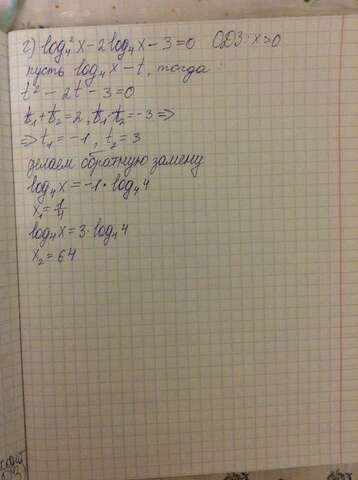 г) log₄²x-2log₄x-3=0 ОДЗ: x>0
пусть log₄x-t, тогда
t²-2t-3=0
t₁+t₂=2, t₁·t₂=-3=>
=>t₁=-1, t₂=3
делаем обратную замену
log₄x=-1·log₄4
x₁=1/4
log₄x=3·log₄4
x₂=64